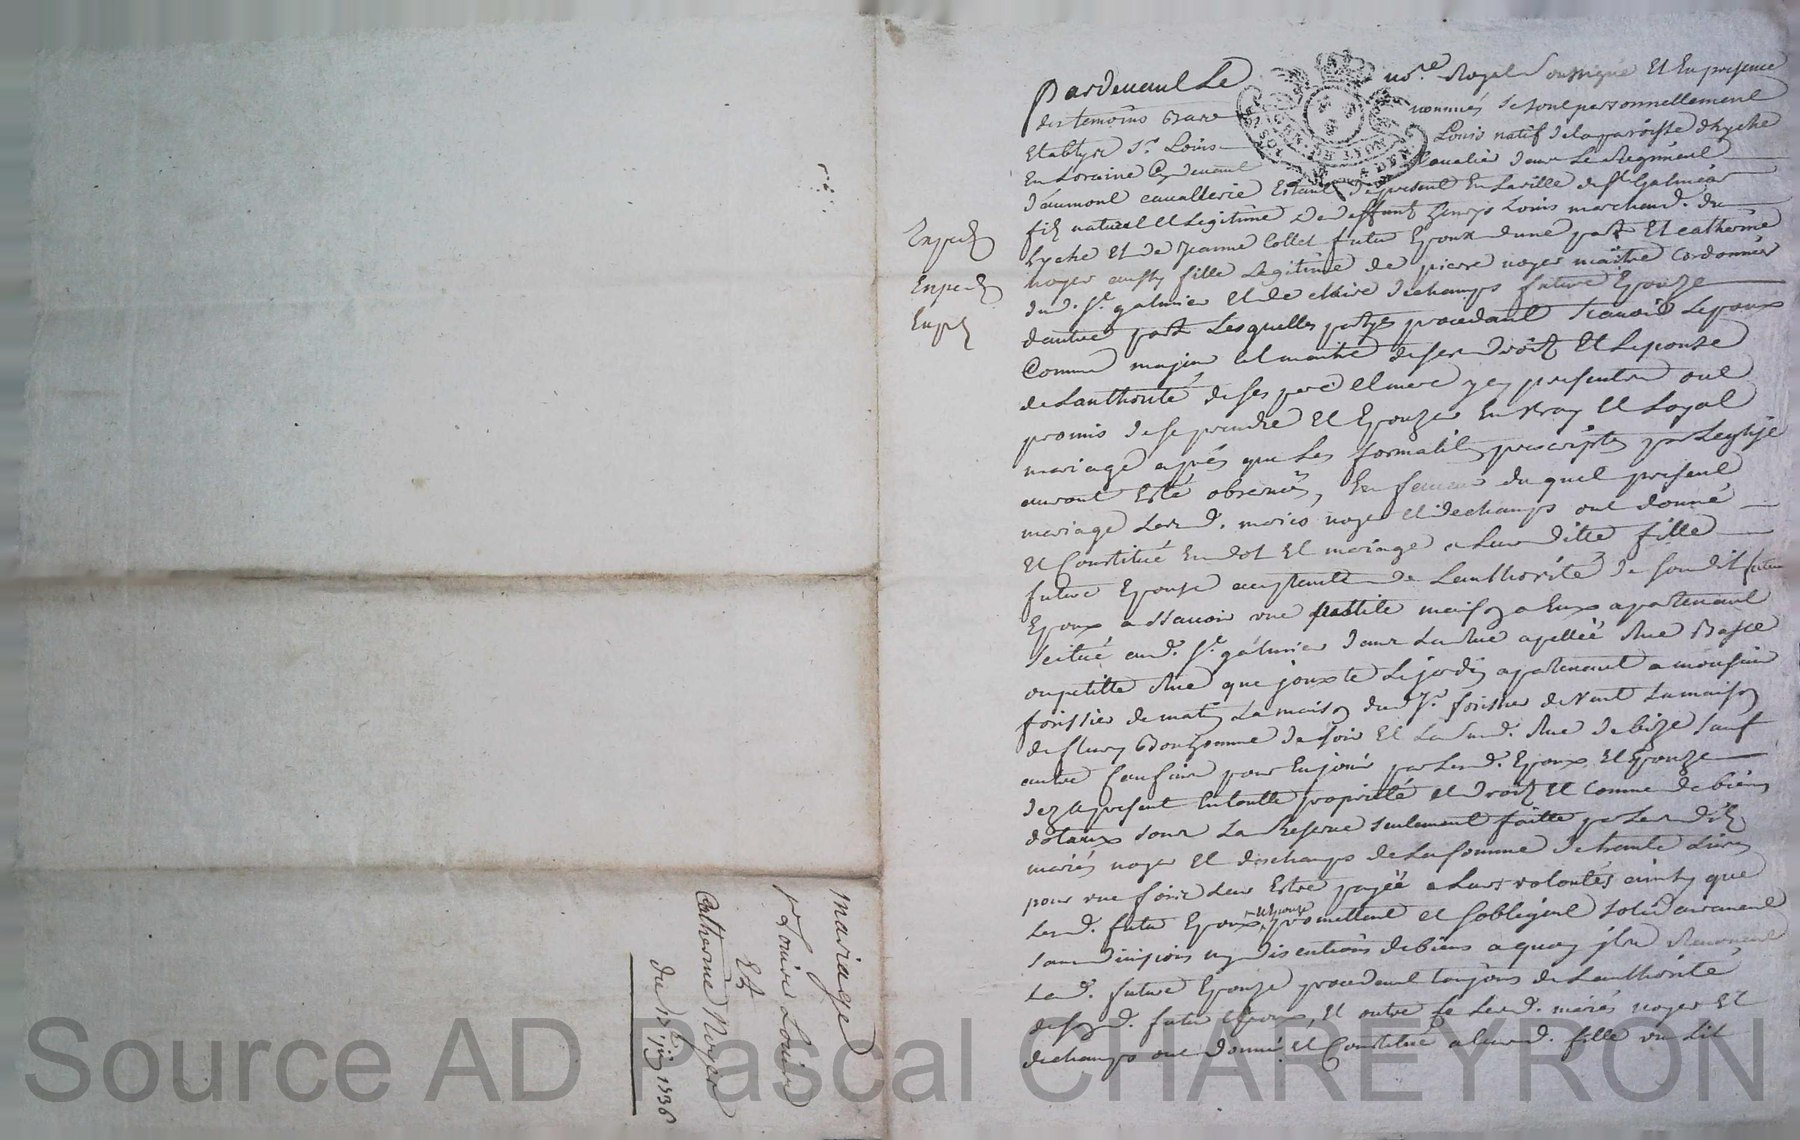 Expedié
Expedié
Exp
Pardevant Le no.re Royal soussigné Et En presence
des temoins Bas nommés se sont personnellement
Etablys Sr. Louis Louis natif de la paroisse dhyche
En Loraine Cy devant Cavalier dans Le Regiment
d'aumont cavallerie Estant de present En La ville de St. Galmier
fils naturel Et Legitime de deffunt Louis marchand du
Lyche Et de Jeanne Collet futur Epoux d'une part Et catherine
noyer aussy fille Legitime de pierre noyer maitre Cordonnier
dud. St. galmier Et de claire dechamps future Epouze
d'autre part Lesquelles partyes procedant scavoir Lepoux
Comme majeur et maitre de ses droits Et Lepouze
de Lauthorité de ses pere et mere y presents ont
promis de se prendre Et Epouzer En vray Et Loyal
mariage après que Les formalités prescriptes par Leglize
auront Esté observés, En faveur duquel present
mariage Lesd. mariés noyer et dechamps ont donné
Et Constitué En dot Et mariage a Leur ditte fille
future Epouze acceptante de Lauthorité de son dit futur
Epoux a sçavoir une petite maison a Eux apartenant
scitué aud. St. galmier dans La Rue apellée Rue Basse
ou petitte Rue que jouxte Le jardin apartenant a monsieur
forissier de matin La maison dud. Sr. forissier de vent La maison
de fleury Bonhomme de soir Et Lasusd. Rue de bize sauf
autre Confins pour En jouir par Lesd. Epoux Et Epouze
dez a present En toutte proprieté et droits Et Comme de biens
dotaux sous La Reserve seulement faitte par Lesdits
mariés noyer Et dechamps de La somme de trente Livres
pour une fois Leur Estre payée a Leurs volontés ainsy que
Lesd. futur Epoux et Epouze promettent et sobligent solidairement
sans division ny discutions de biens a quoy ils Renoncent
Lad. future Epouze procedant toujours de Lauthorité
de sond. futur Epoux, Et outre Ce Lesd. mariés noyer Et
dechamps ont donné Et Constitué a Leurd. fille un Lit
mariage
Sr Louis Louis
Et
Catherine Noyer
du 17e 1736
Source AD Pascal CHAREYRON